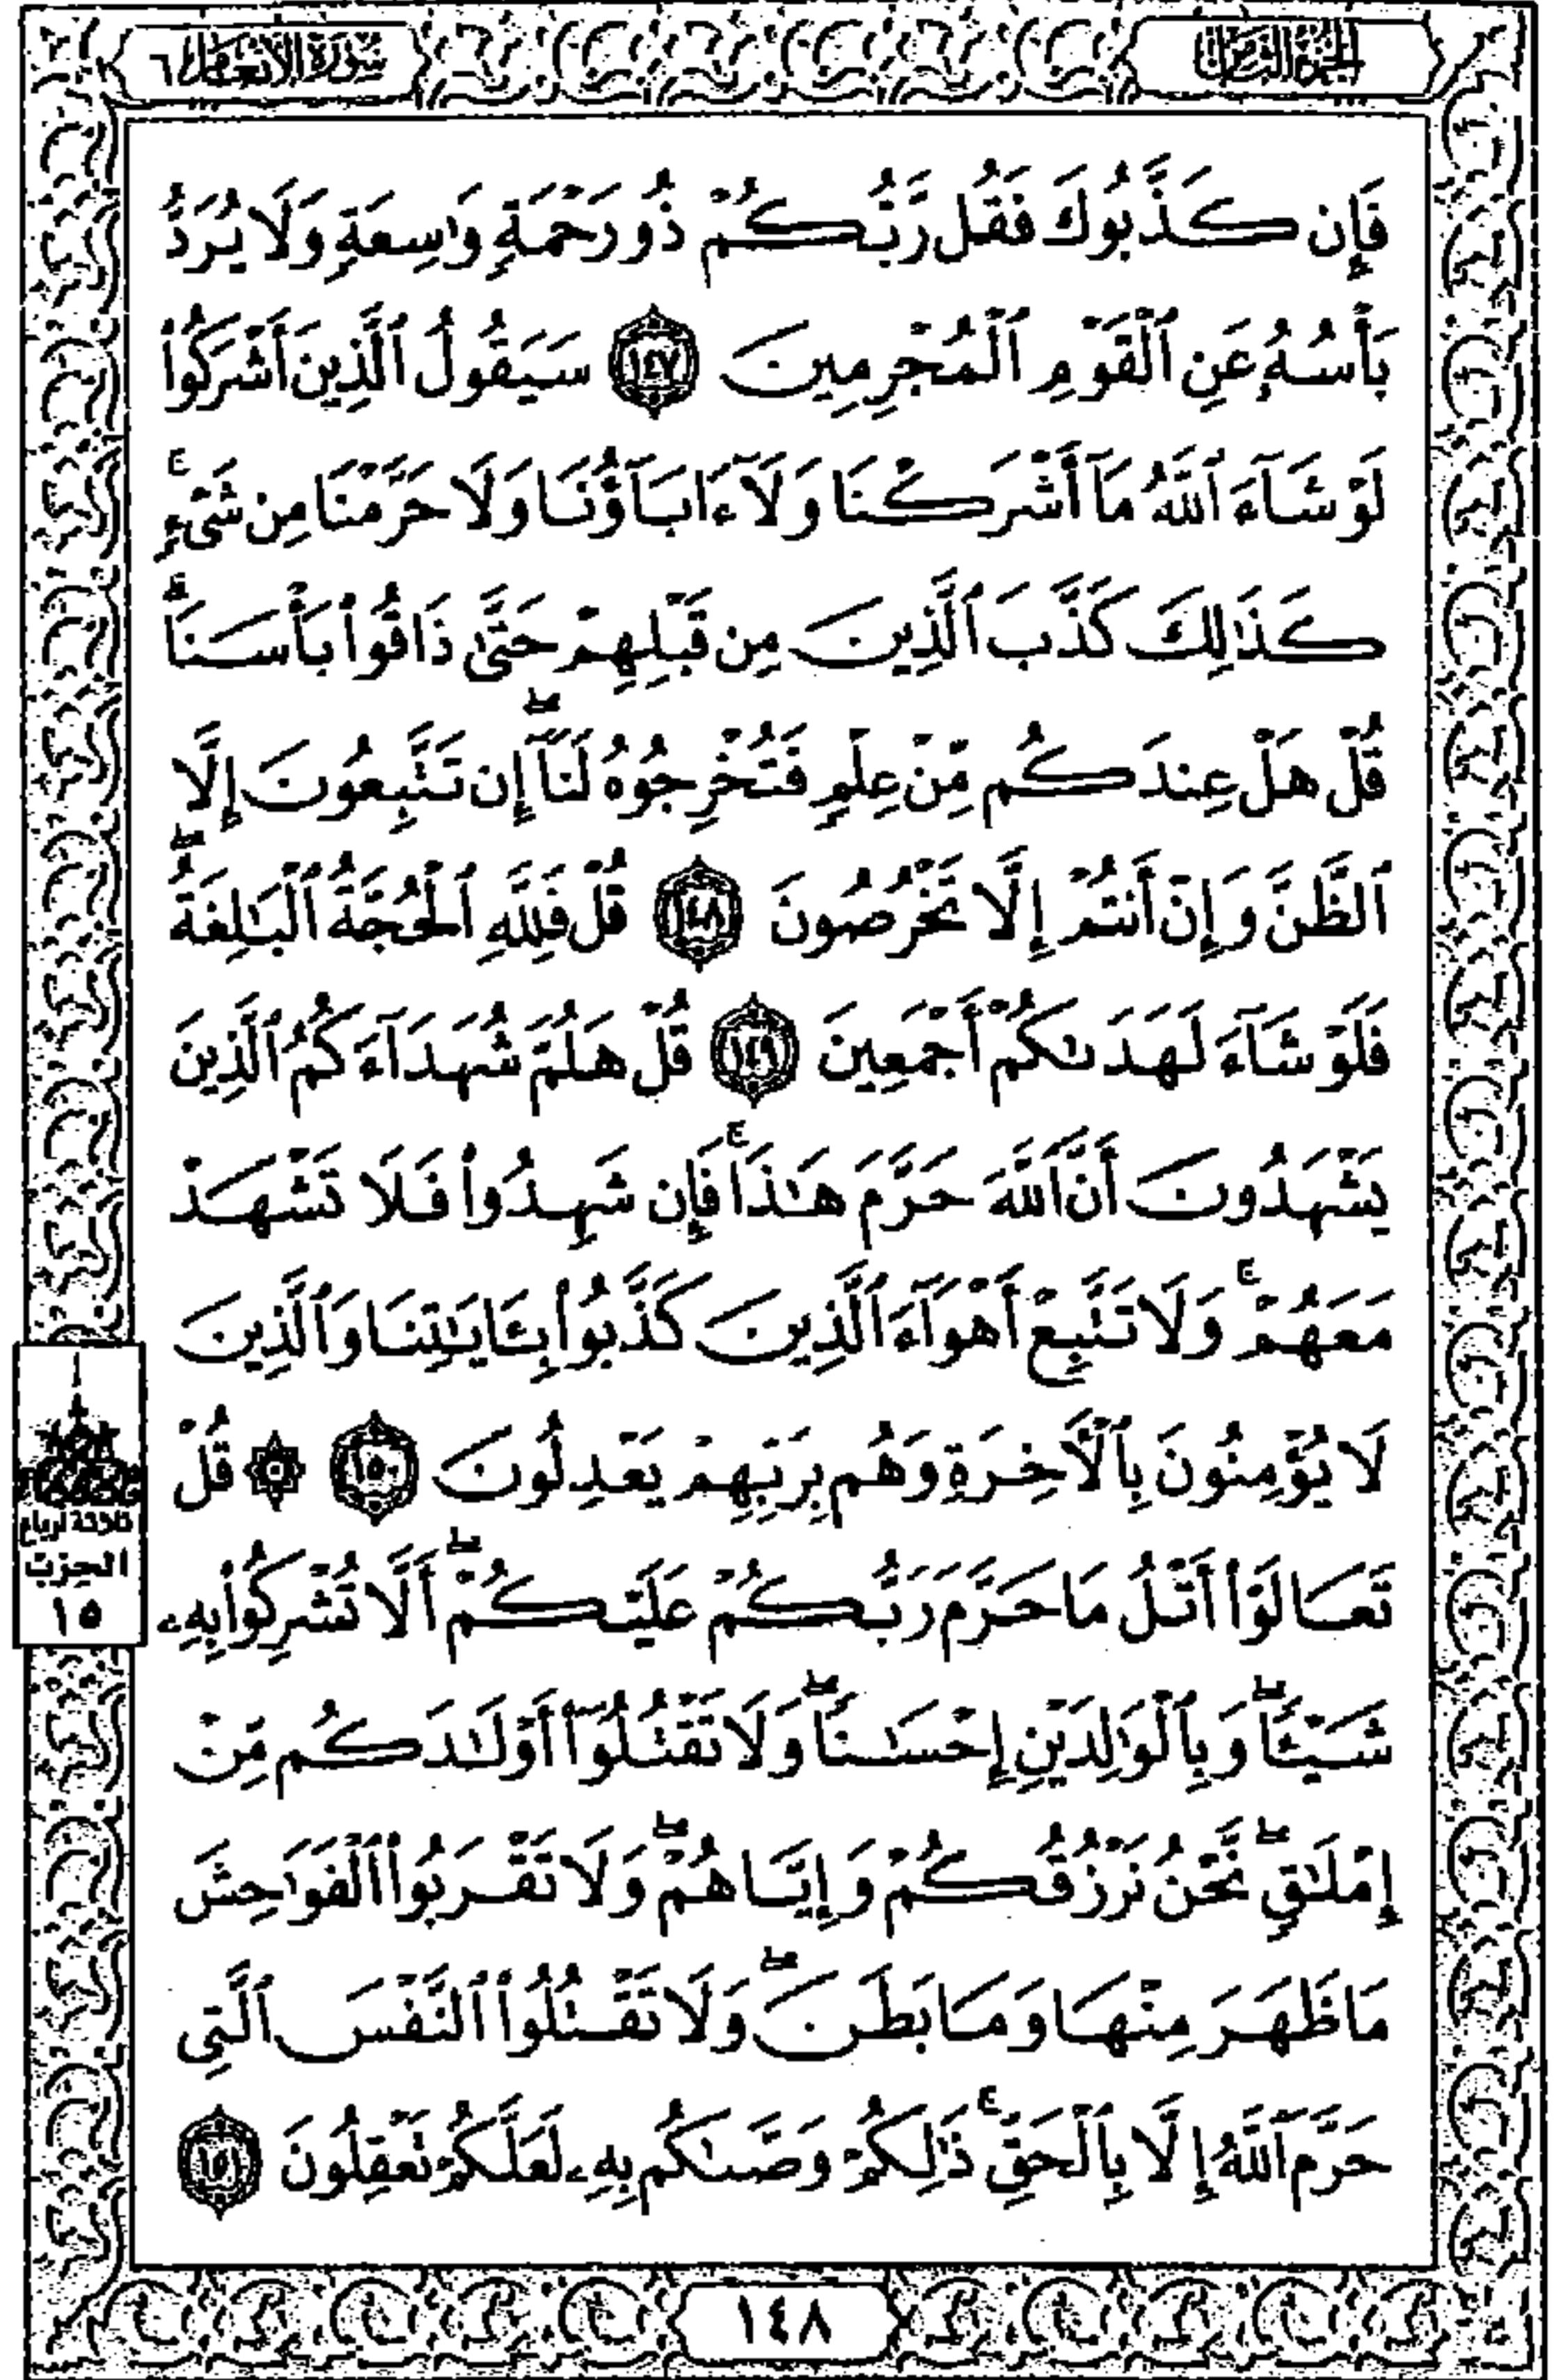 الجزء الثامن
سورة الأنعام ٦
فَإِن كَذَّبُوكَ فَقُل رَّبُّكُمْ ذُو رَحْمَةٍ وَٰسِعَةٍ وَلَا يُرَدُّ
بَأْسُهُۥ عَنِ ٱلْقَوْمِ ٱلْمُجْرِمِينَ ١٤٧ سَيَقُولُ ٱلَّذِينَ أَشْرَكُوا۟
لَوْ شَآءَ ٱللَّهُ مَآ أَشْرَكْنَا وَلَآ ءَابَآؤُنَا وَلَا حَرَّمْنَا مِن شَىْءٍۚ
كَذَٰلِكَ كَذَّبَ ٱلَّذِينَ مِن قَبْلِهِمْ حَتَّىٰ ذَاقُوا۟ بَأْسَنَاۗ
قُلْ هَلْ عِندَكُم مِّنْ عِلْمٍ فَتُخْرِجُوهُ لَنَآۖ إِن تَتَّبِعُونَ إِلَّا
ٱلظَّنَّ وَإِنْ أَنتُمْ إِلَّا تَخْرُصُونَ ١٤٨ قُلْ فَلِلَّهِ ٱلْحُجَّةُ ٱلْبَٰلِغَةُۖ
فَلَوْ شَآءَ لَهَدَىٰكُمْ أَجْمَعِينَ ١٤٩ قُلْ هَلُمَّ شُهَدَآءَكُمُ ٱلَّذِينَ
يَشْهَدُونَ أَنَّ ٱللَّهَ حَرَّمَ هَٰذَاۚ فَإِن شَهِدُوا۟ فَلَا تَشْهَدْ
مَعَهُمْۚ وَلَا تَتَّبِعْ أَهْوَآءَ ٱلَّذِينَ كَذَّبُوا۟ بِـَٔايَٰتِنَا وَٱلَّذِينَ
لَا يُؤْمِنُونَ بِٱلْءَاخِرَةِ وَهُم بِرَبِّهِمْ يَعْدِلُونَ ١٥٠ ۞ قُلْ
تَعَالَوْا۟ أَتْلُ مَا حَرَّمَ رَبُّكُمْ عَلَيْكُمْۖ أَلَّا تُشْرِكُوا۟ بِهِۦ
شَيْـًٔاۖ وَبِٱلْوَٰلِدَيْنِ إِحْسَٰنًاۖ وَلَا تَقْتُلُوٓا۟ أَوْلَٰدَكُم مِّنْ
إِمْلَٰقٍۖ نَّحْنُ نَرْزُقُكُمْ وَإِيَّاهُمْۖ وَلَا تَقْرَبُوا۟ ٱلْفَوَٰحِشَ
مَا ظَهَرَ مِنْهَا وَمَا بَطَنَۖ وَلَا تَقْتُلُوا۟ ٱلنَّفْسَ ٱلَّتِى
حَرَّمَ ٱللَّهُ إِلَّا بِٱلْحَقِّۚ ذَٰلِكُمْ وَصَّىٰكُم بِهِۦ لَعَلَّكُمْ تَعْقِلُونَ ١٥١
ثلاثة أرباع
الحزب
١٥
١٤٨